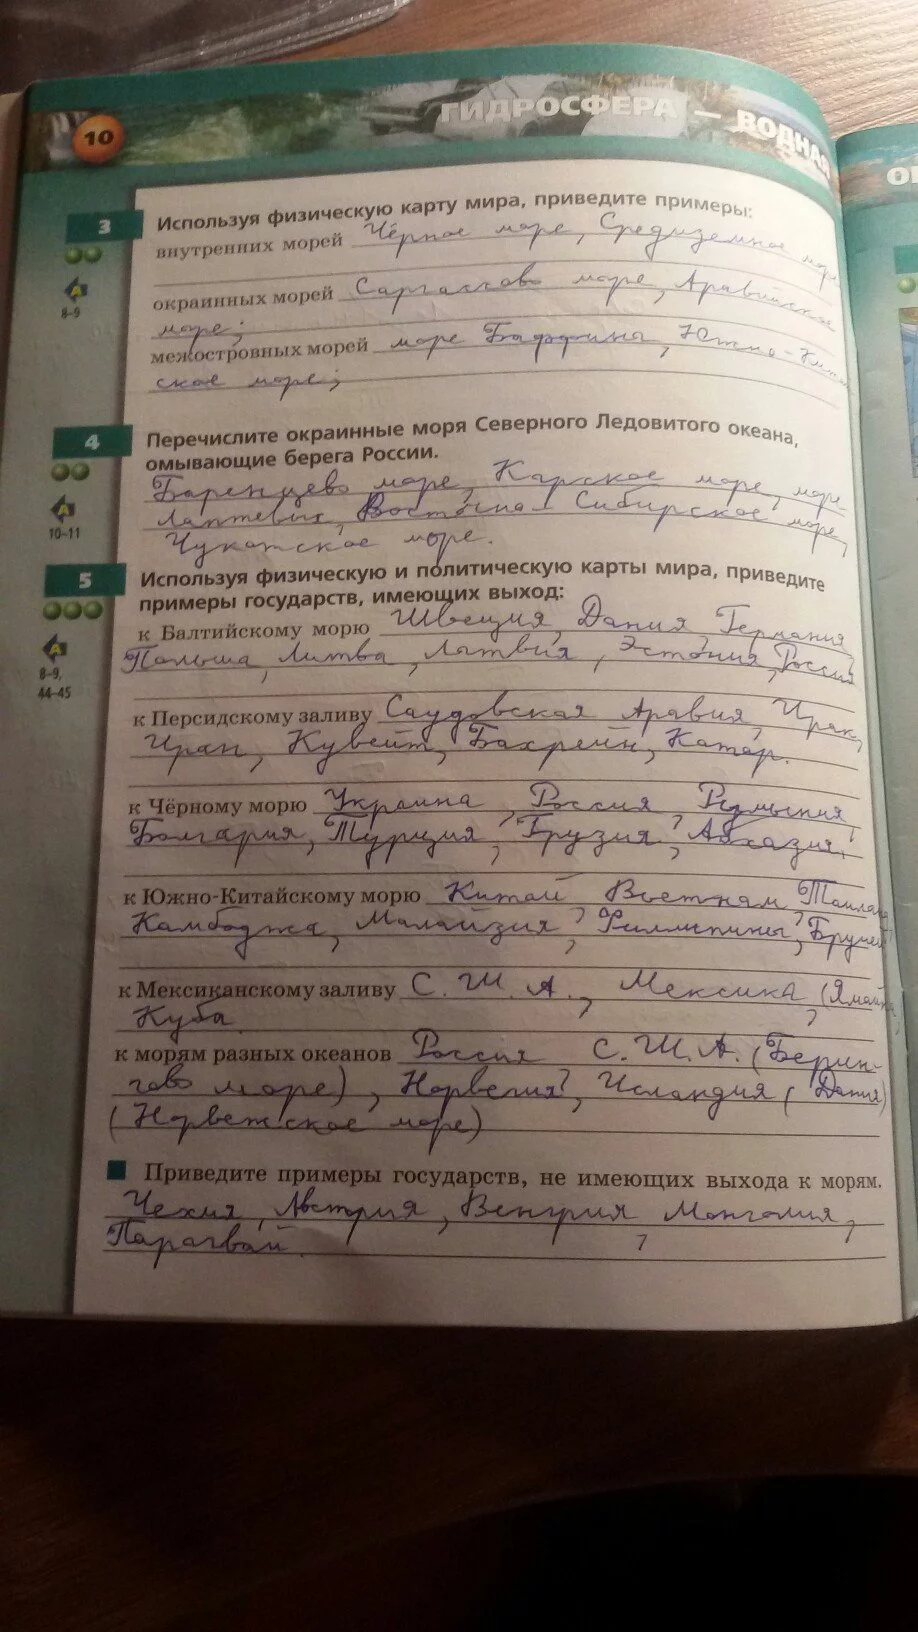 10
ГИДРОСФЕРА — ВОДНАЯ
3
Используя физическую карту мира, приведите примеры:
внутренних морей Чёрное море, Средиземное море
окраинных морей Саргассово море, Аравийское
море;
межостровных морей море Баффина, Южно-Китай
ское море;
А
8–9
4
Перечислите окраинные моря Северного Ледовитого океана,
омывающие берега России.
Баренцево море, Карское море, море
Лаптевых, Восточно-Сибирское море,
Чукотское море.
А
10–11
5
Используя физическую и политическую карты мира, приведите
примеры государств, имеющих выход:
к Балтийскому морю Швеция, Дания, Германия,
Польша, Литва, Латвия, Эстония, Россия
А
8–9,
44–45
к Персидскому заливу Саудовская Аравия, Ирак,
Иран, Кувейт, Бахрейн, Катар.
к Чёрному морю Украина, Россия, Румыния,
Болгария, Турция, Грузия, Абхазия.
к Южно-Китайскому морю Китай, Вьетнам, Таиланд
Камбоджа, Малайзия, Филиппины, Бруней
к Мексиканскому заливу С.Ш.А., Мексика, (Ямайка,
Куба
к морям разных океанов Россия С.Ш.А. (Берин-
гово море), Норвегия, Исландия (Дания)
(Норвежское море)
Приведите примеры государств, не имеющих выхода к морям.
Чехия, Австрия, Венгрия, Монголия,
Парагвай.